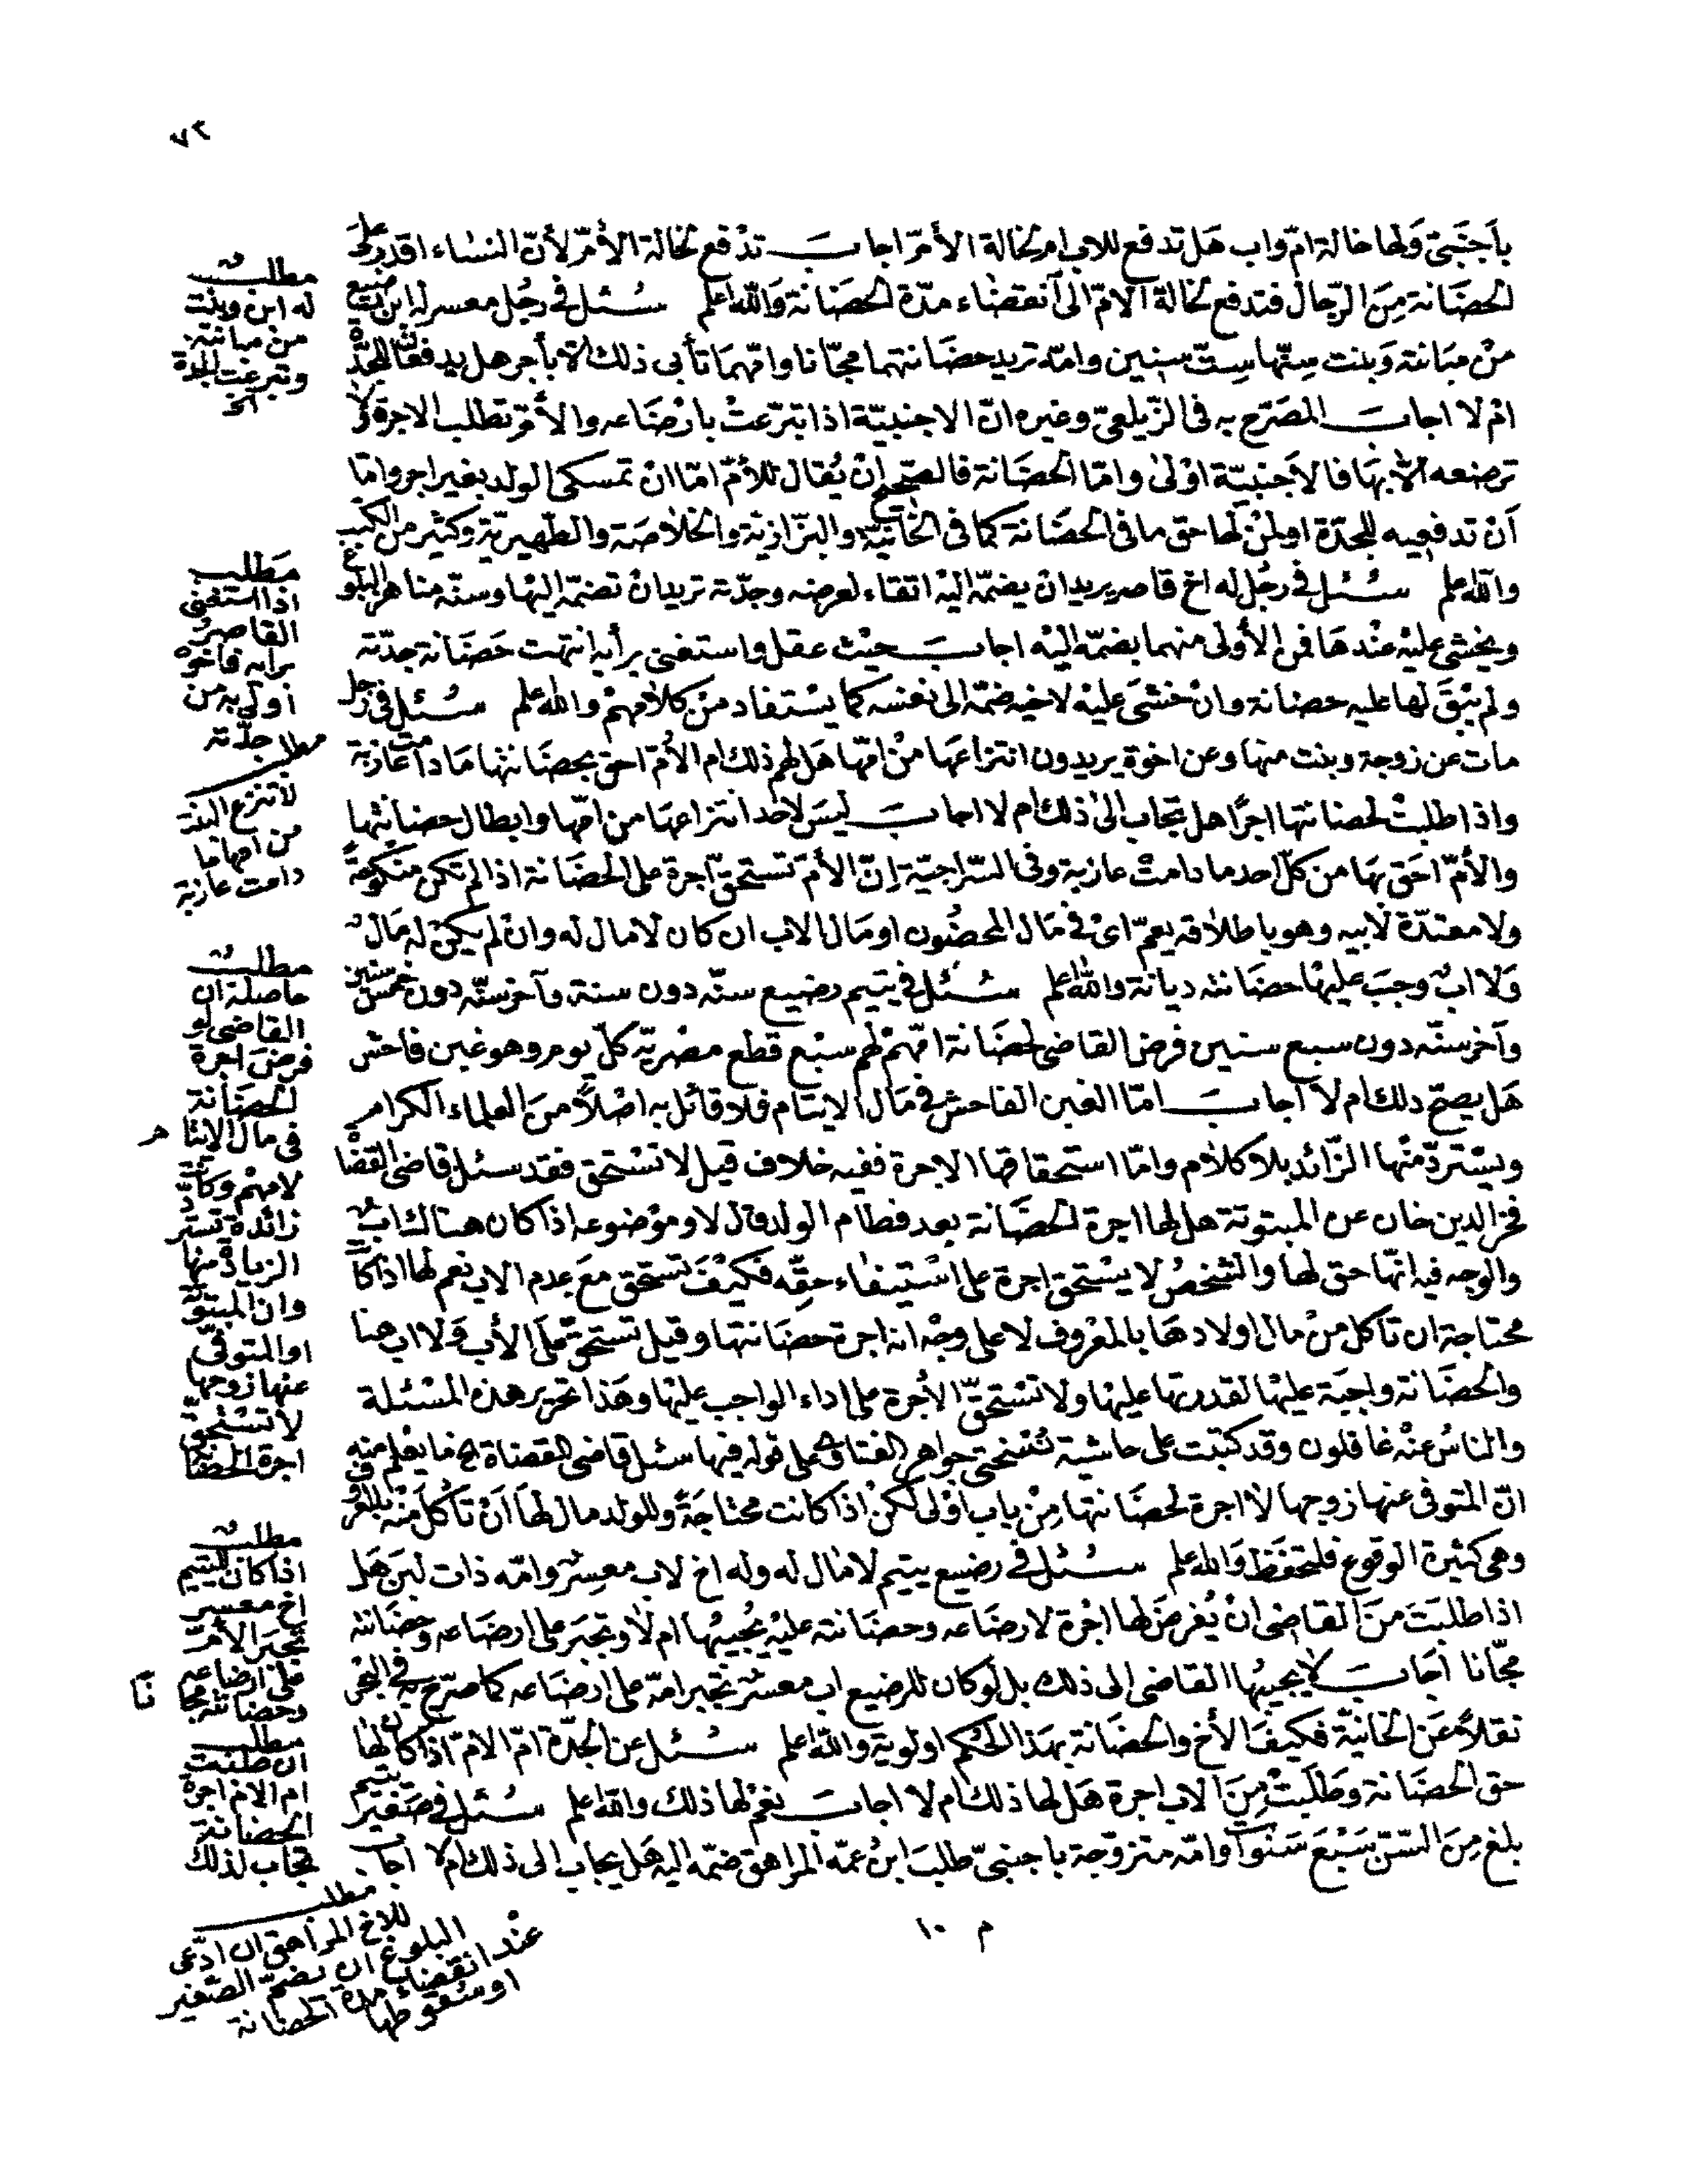 ٧٢
بأجنبيّ ولها خالة امّ واب هل تدفع للاب ام لخالة الأمّ اجاب تدفع لخالة الأمّ لأنّ النساء اقدر على
الحضانة من الرّجال فتدفع لخالة الامّ الى انقضاء مدّة الحضانة والله اعلم سئل فى رجل معسر له ابن رضيع
منْ مبانته وبنت سنّها ستّ سنين وامّه تريد حضانتهما مجّانا وامّهما تأبى ذلك الا بأجر هل يدفعا للجدّة
امْ لا اجاب المصرّح به فى الزّيلعىّ وغيره انّ الاجنبيّة اذا تبرّعتْ بارْضاعه والأمّ تطلب الاجرة ولا
ترضعه الاّ بها فالاجنبيّة اوْلى وامّا الحضانة فالصحيح انْ يُقال للأمّ امّا انْ تمسكى الولد بغير اجر وامّا
أنْ تدفعيه للجدّة اولمنْ لها حق ما فى الحضانة كما فى الخانيّة والبزّازيّة والخلاصة والظهيريّة وكثير من الكتب
والله اعلم سئل فى رجُل له اخ قاصر يريد ان يضمّه اليْه اتقاء لعرضه وجدّته تريد انْ تضمّه اليْها وسنّه مناهز البلوغ
ويخشى عليْه عنْدها فمن الأولى منهما بضمّه اليْه اجاب حيْث عقل واستغنى برأيه انتهت حضانة جدّته
ولم يبْق لها عليه حضانة وانْ خشى عليْه لاخيه ضمّه الى نفسه كما يسْتفاد منْ كلامهمْ والله اعلم سئل فى رجل
مات عن زوجة وبنت منها وعن اخوة يريدون انتزاعها منْ امّها هل لهم ذلك ام الأمّ احق بحضانتها ما دامت عازبة
واذا طلبتْ لحضانتها اجرًا هل تجاب الى ذلك ام لا اجاب ليس لاحد انتزاعها من امّها وابطال حضانتها
والأمّ احق بها من كلّ احد ما دامتْ عازبة وفى السّراجيّة انّ الأمّ تستحقّ اجرة على الحضانة اذا لم تكن منكوحةً
ولا معتدّة لأبيه وهو باطلاقه يعمّ اىْ فى مال المحضون او مال الاب ان كان لا مال له وانْ لم يكنْ له مال
ولا ابٌ وجب عليها حضانته ديانة والله اعلم سئل فى يتيم رضيع سنّه دون سنة وآخر سنّه دون خمس سنين
وآخر سنّه دون سبع سنين فرض القاضى لحضانة امّهمْ لهم سبْع قطع مصْريّه كلّ يوم وهو غبن فاحش
هل يصحّ ذلك ام لا اجاب امّا الغبن الفاحش فى مال الايتام فلا قائل به اصْلاً من العلماء الكرام
ويسْتردّ منْها الزّائد بلا كلام وامّا استحقاقها الاجرة ففيه خلاف قيل لا تسْتحق فقد سئل قاضى القضا
فخر الدين خان عن المبتوتة هل لها اجرة الحضانة بعد فطام الولد قال لا وموْضوعه اذا كان هناك ابٌ
والوجه فيه انّها حق لها والشخصُ لا يسْتحق اجرة على اسْتيفاء حقّه فكيْف تستحقّ مع عدم الاب نعم لها اذا كا
محتاجة ان تأكل منْ مال اولادها بالمعْروف لا على وجْه انه اجرة حضانتها وقيل تستحقّ على الأب ولا اب هنا
والحضانة واجبة عليْها لقدرتها عليْها ولا تسْتحقّ الأجرة على اداء الواجب عليْها وهذا تحرير هذه المسْئلة
والناسُ عنْه غافلون وقد كتبْت على حاشية نُسْختى جواهر الفتاوى على قوله فيها سئل قاضى القضاة الخ ما يعْلم منه
انّ المتوفى عنها زوجها لا اجرة لحضانتها منْ باب أوْلى لكنْ اذا كانت محتاجةً وللولد مال لها أنْ تأكل منْه بالمعروف
وهى كثيرة الوقوع فلتحفظ والله اعلم سئل فى رضيع يتيم لا مال له وله اخ لاب معسِر وامّه ذات لبن هل
اذا طلبت من القاضى انْ يُفرض لها اجْرة لارضاعه وحضانته عليْه يُجيبُها ام لا وتجبر على ارضاعه وحضانته
مجّانا اجاب لا يجيبُها القاضى الى ذلك بل لو كان للرضيع اب معسر تجبر امّه على ارضاعه كما صرّح به فى البحر
نقلاً عن الخانيّة فكيف الأخ والحضانة بهذا الحكم اولويّة والله اعلم سئل عن الجدّة امّ الامّ اذا كان لها
حق الحضانة وطلبتْ من الاب اجرة هل لها ذلك ام لا اجاب نعمْ لها ذلك والله اعلم سئل فى صغير يتيم
بلغ من السّنّ سبْع سنوات وامّه متزوّجة باجنبىّ طلب ابنُ عمّه المراهق ضمّه اليه هل يجاب الى ذلك ام لا اجاب
م ١٠
مطلب
له ابن وبنت
من مبانته
وتبرعت الجدة
الخ
مطلب
اذا استغنى
القاصر
برأيه فاخوه
أولى به من
جدّته
مطلب
لا تنزع البنت
من امها ما
دامت عازبة
مطلب
حاصله ان
القاضى لو
فرض اجرة
لحضانة
فى مال الايتام
لامهمْ وكانت
زائدة تستر
الزيادة منها
وان المبتوتة
او المتوفى
عنها زوجها
لا تستحق
اجرة الحضانة
مطلب
اذا كان لليتيم
اخ معسر
تجبر الأمّ
على ارضاعه
وحضانته مجانا
مطلب
ان طلبت
ام الام اجرة
الحضانة
تجاب لذلك
مطلب
للاخ المراهق ان ادّعى
البلوغ ان يضمّ الصغير
عنْد انقضاء مدة الحضانة
او سقوطها